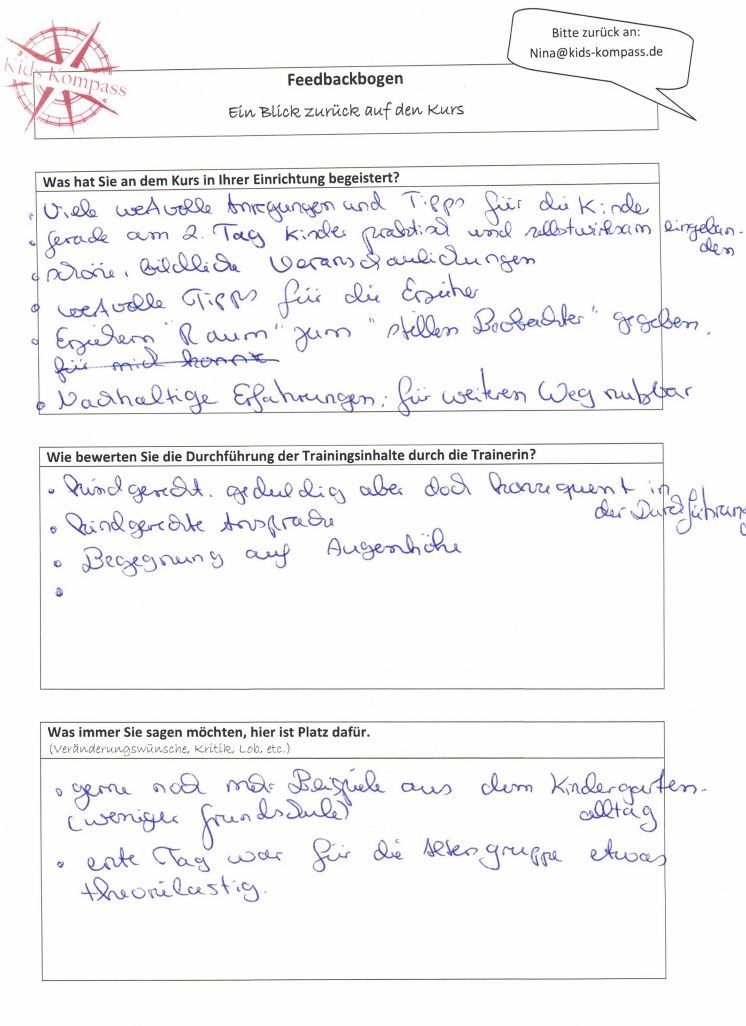 Kids Kompass
Bitte zurück an:
Nina@kids-kompass.de
Feedbackbogen
Ein Blick zurück auf den Kurs
Was hat Sie an dem Kurs in Ihrer Einrichtung begeistert?
• Viele wertvolle Anregungen und Tipps für die Kinde
• gerade am 2. Tag Kinder praktisch und selbstwirksam eingebun-
den
• schöne, bildliche Veranschaulichungen
• wertvolle Tipps für die Erzieher
• Erziehern "Raum" zum "stillen Beobachter" gegeben.
für mich konnte
• Nachhaltige Erfahrungen, für weiteren Weg nutzbar
Wie bewerten Sie die Durchführung der Trainingsinhalte durch die Trainerin?
• kindgerecht, geduldig aber doch konsequent in
der Durchführung
• kindgerechte Ansprache
• Begegnung auf Augenhöhe
•
Was immer Sie sagen möchten, hier ist Platz dafür.
(Veränderungswünsche, Kritik, Lob, etc.)
• gerne noch mehr Beispiele aus dem Kindergarten-
(weniger Grundschule) alltag
• erste Tag war für die Altersgruppe etwas
theorielastig.